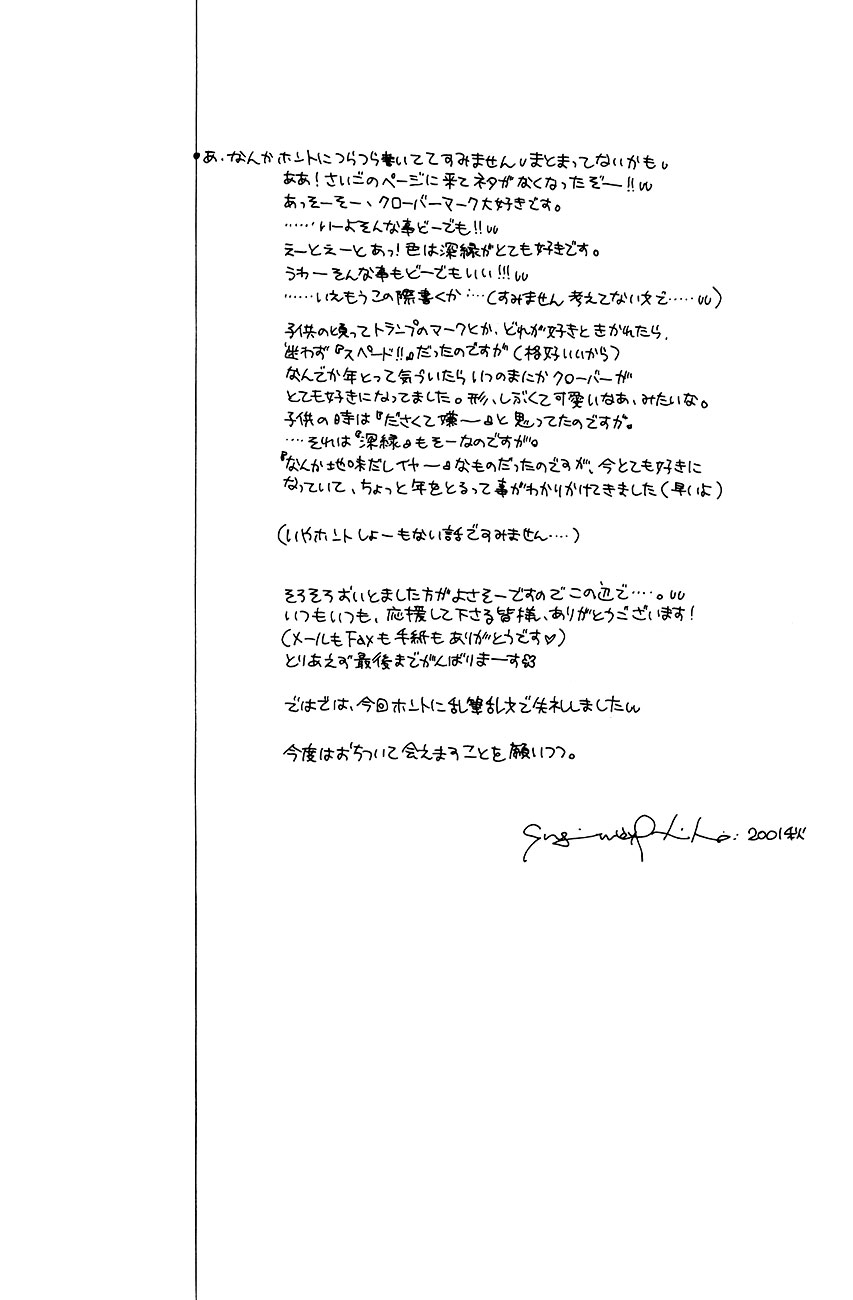 あ、なんかホントにつらつら書いててすみません まとまってないかも
ああ!さいごのページに来てネタがなくなったぞー!!
あっそーそー、クローバーマーク大好きです。
……いーよそんな事どーでも!!
えーとえーとあっ!色は深緑がとても好きです。
うわーそんな事もどーでもいい!!!
……いえもうこの際書くか…(すみません考えてない文で……)
子供の頃ってトランプのマークとか、どれが好きときかれたら、
迷わず『スペード!!』だったのですが(格好いいから)
なんでか年とって気づいたらいつのまにかクローバーが
とても好きになってました。形、しぶくて可愛いなあ、みたいな。
子供の時は『ださくて嫌ー』と思ってたのですが。
…それは『深緑』もそーなのですが。
『なんか地味だしイヤー』なものだったのですが、今とても好きに
なっていて、ちょっと年をとるって事がわかりかけてきました(早いよ)
(いやホントしょーもない話ですみません…)
そろそろおいとました方がよさそーですのでこの辺で…。
いつもいつも、応援して下さる皆様、ありがとうございます!
(メールもFaxも手紙もありがとうです♡)
とりあえず最後までがんばりまーす
ではでは、今回ホントに乱筆乱文で失礼しました
今度はおちついて会えますことを願いつつ。
2001秋